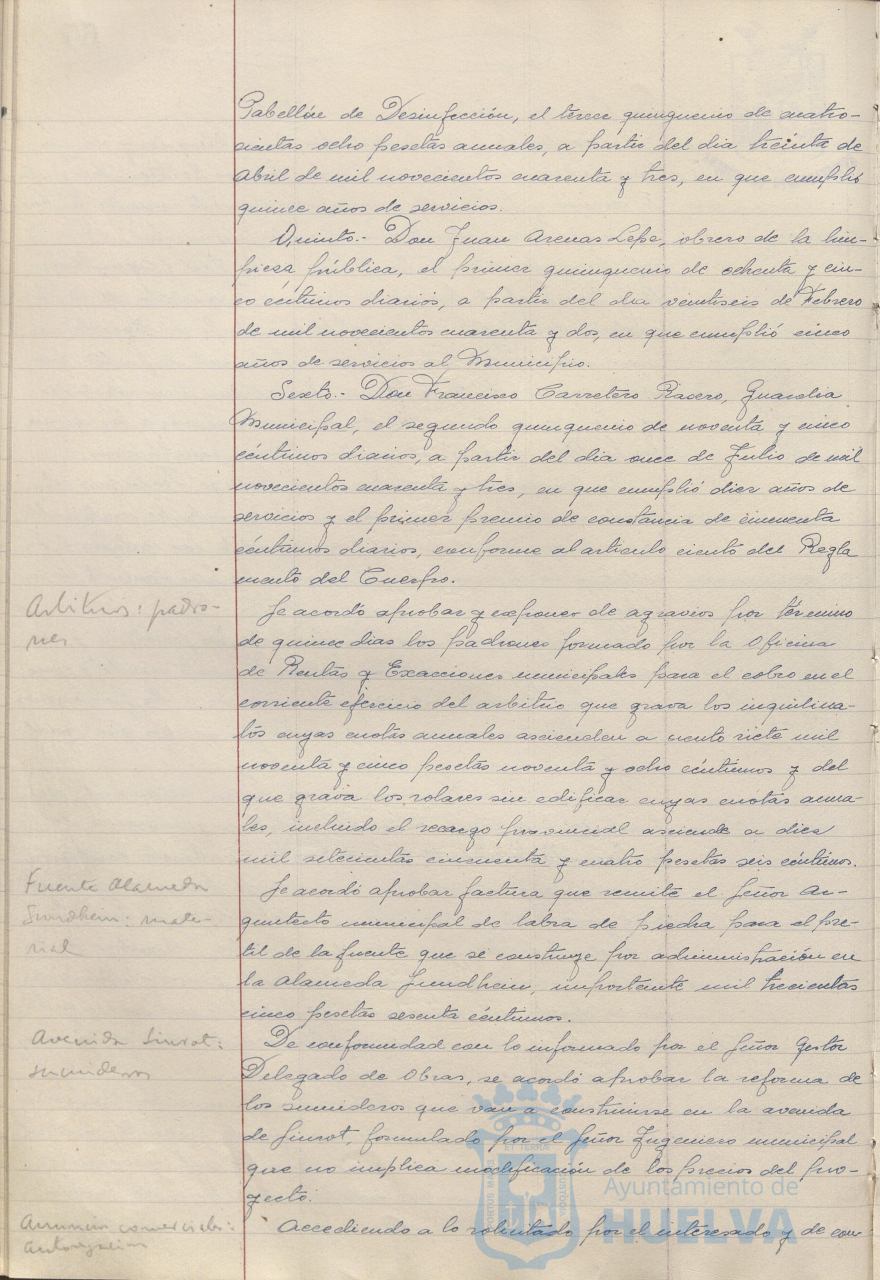 Pabellón de Desinfección, el tercer quinquenio de cuatro-
cientas ocho pesetas anuales, a partir del dia treinta de
Abril de mil novecientos cuarenta y tres, en que cumplió
quince años de servicios.
Quinto.- Don Juan Arenas Lepe, obrero de la lim-
pieza pública, el primer quinquenio de ochenta y cin-
co céntimos diarios, a partir del dia veintiseis de Febrero
de mil novecientos cuarenta y dos, en que cumplió cinco
años de servicios al Municipio.
Sexto.- Don Francisco Carretero Racero, Guardia
Municipal, el segundo quinquenio de noventa y cinco
céntimos diarios, a partir del dia once de Julio de mil
novecientos cuarenta y tres, en que cumplió diez años de
servicios y el primer premio de constancia de cincuenta
céntimos diarios, conforme al articulo ciento del Regla
mento del Cuerpo.
Arbitrios: padro-
nes
Se acordó aprobar y exponer de agravios por término
de quince dias los padrones formado por la Oficina
de Rentas y Exacciones municipales para el cobro en el
corriente ejercicio del arbitrio que grava los inquilina-
tos cuyas cuotas annales ascienden a ciento siete mil
noventa y cinco pesetas noventa y ocho céntimos y del
que grava los solares sin edificar cuyas cuotas anua-
les, incluido el recargo provincial asciende a diez
mil setecientas cincuenta y cuatro pesetas seis céntimos.
Fuente Alameda
Sundhein: mate-
rial
Se acordó aprobar factura que remite el Señor Ar-
quitecto municipal de labra de piedra para el pre-
til de la fuente que se construye por administración en
la Alameda Sundhein, importante mil trecientas
cinco pesetas sesenta céntimos.
Avenida Siurot:
sumideros
De conformidad con lo informado por el Señor Gestor
Delegado de Obras, se acordó aprobar la reforma de
los sumideros que van a construirse en la avenida
de Siurot, formulado por el Señor Ingeniero municipal
que no implica modificación de los precios del pro-
yecto.
Anuncios comerciales:
Autorización
Accediendo a lo solicitado por el interesado y de con-
Ayuntamiento de
HUELVA